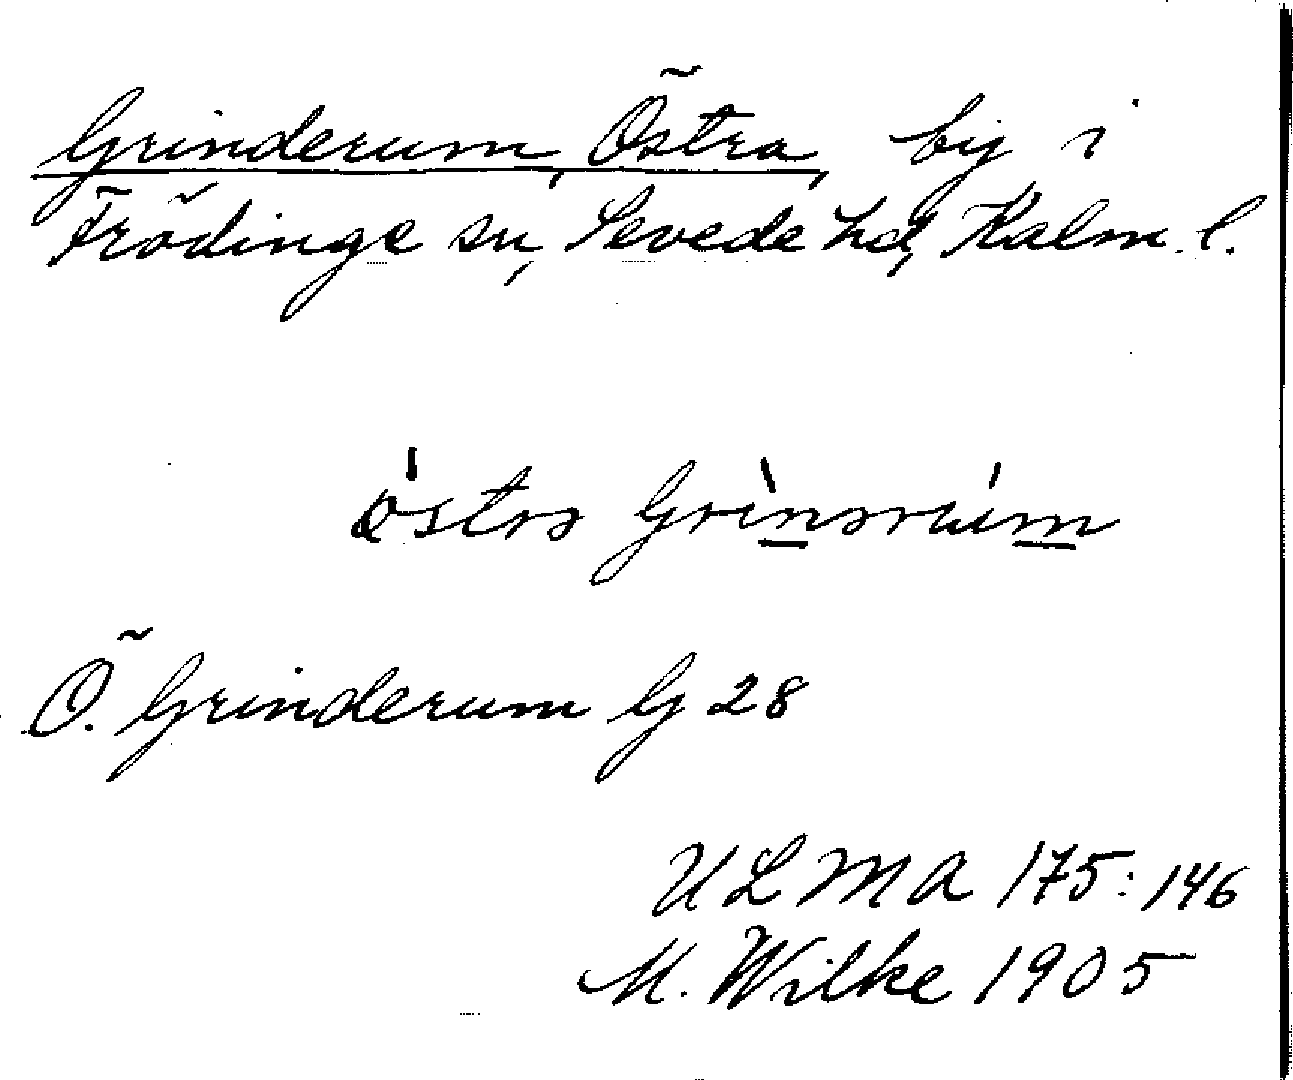 Grinderum, Östra, by i
Frödinge sn, Sevede hd, Kalm. l.
östrə Grinərum
Ö. Grinderum G 28
ULMA 175:146
M. Wilke 1905